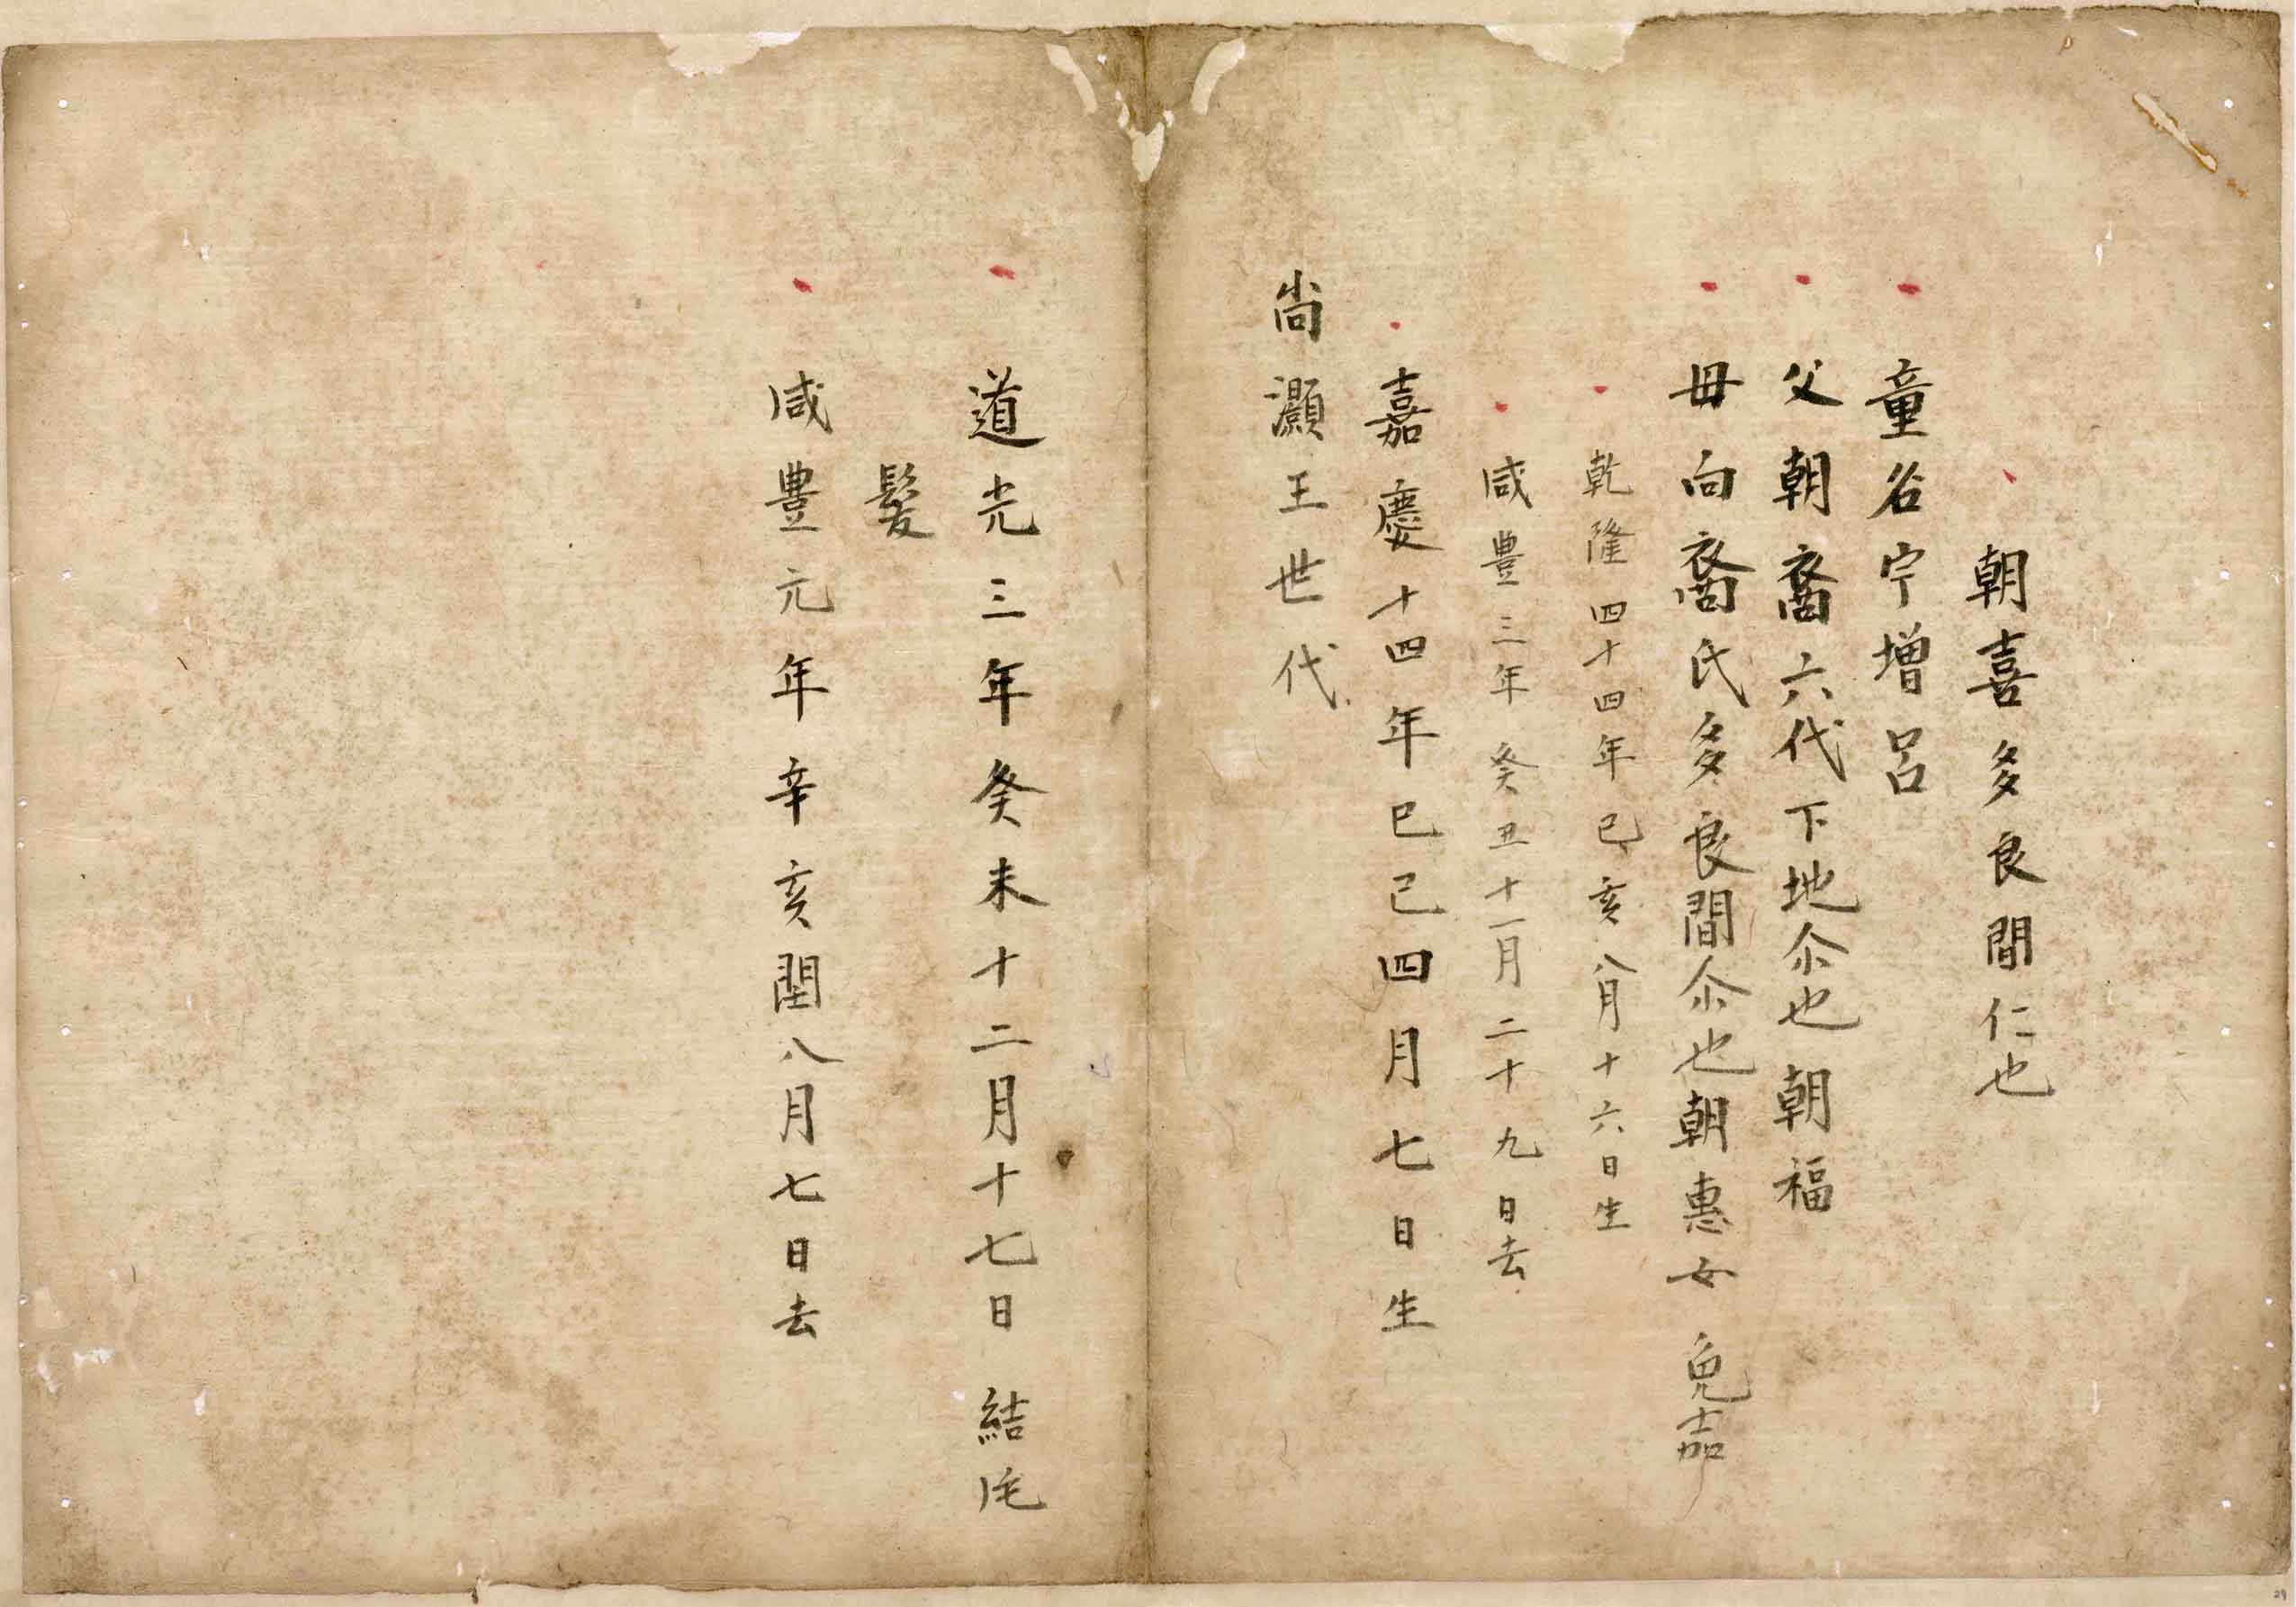 朝喜多良間仁也
童名宁增呂
父朝裔六代下地尒也朝福
母向裔氏多良間尒也朝惠女免嘉
乾隆四十四年己亥八月十六日生
咸豊三年癸丑十一月二十九日去
嘉慶十四年己巳四月七日生
尚灝王世代
道光三年癸未十二月十七日結
髮
咸豊元年辛亥閏八月七日去
29